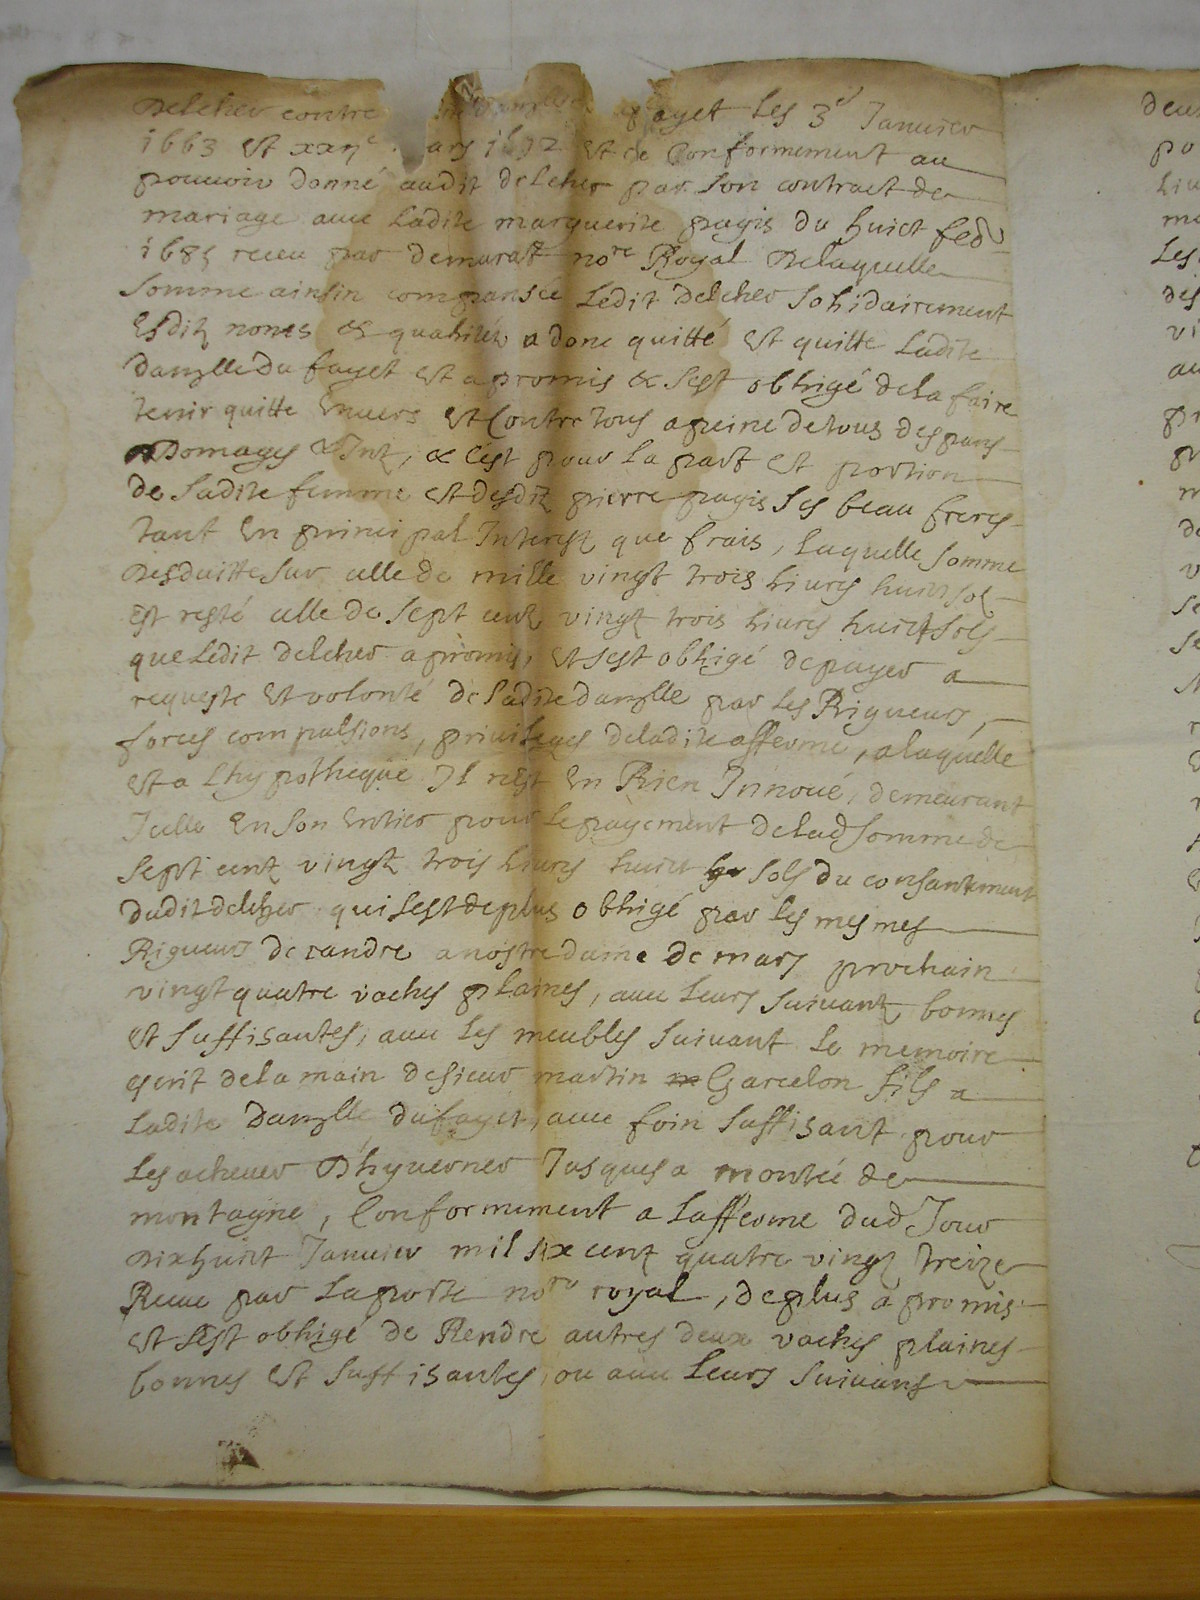 Delcher contre payet Les 3e Januier
1663 Et xxije ars 1672 Et ce Conformement au
pouuoir donné audit delcher par son contract de
mariage auec Ladite marguerite pagis du huict febr
1685 receu par demurat nore Royal Delaquelle
Somme ainsin compansée Ledit delcher solidairement
Esditz noms & qualitéz a donc quitté Et quitte Ladite
damzlle du fayet Et a promis & sest obligé dela faire
tenir quitte Enuers Et Contre tous a peine de tous despans
Domages & Intz, & c'est pour La part Et portion
de Sadite femme Et desditz pierre pagis Ses beau freres
tant En principal Interestz que frais, laquelle somme
Desduitte Sur celle de mille vingt trois liures huict solz
Est resté celle de Sept centz vingtz trois liures huict sols
que Ledit delcher a promis, Et sest obligé de payer a
requeste Et volonté de Ladite damzlle par Les Rigueurs,
forces compulsions, priuileges deladite afferme, a laquelle
Et a Lhypotheque Il n'Est En Rien Innoué, demeurant
Icelle En son Entier pour Le payement delad somme de
Sept centz vingtz trois liures huict sols du consantement
dudit delcher, qui sest de plus obligé par Les mesmes
Rigueurs de randre a nostre dame de mars prochain
vingt quatre vaches plaines, auec Leurs Suiuantz bonnes
Et suffisantes, auec Les meubles suiuant Le memoire
escrit dela main de sieur martin Garcelon fils a
Ladite Damzlle du fayet, auec foin suffisant pour
Les acheuer D'hyuerner Jusques a montée de
montagne, Conformement a Lafferme dud Jour
Dixhuict Januier mil six centz quatre vingtz treize
Receue par Laporte nore royal, de plus a promis
Et s'Est obligé de Rendre autres deux vaches plaines
bonnes Et suffisantes, ou auec Leurs Suiuans